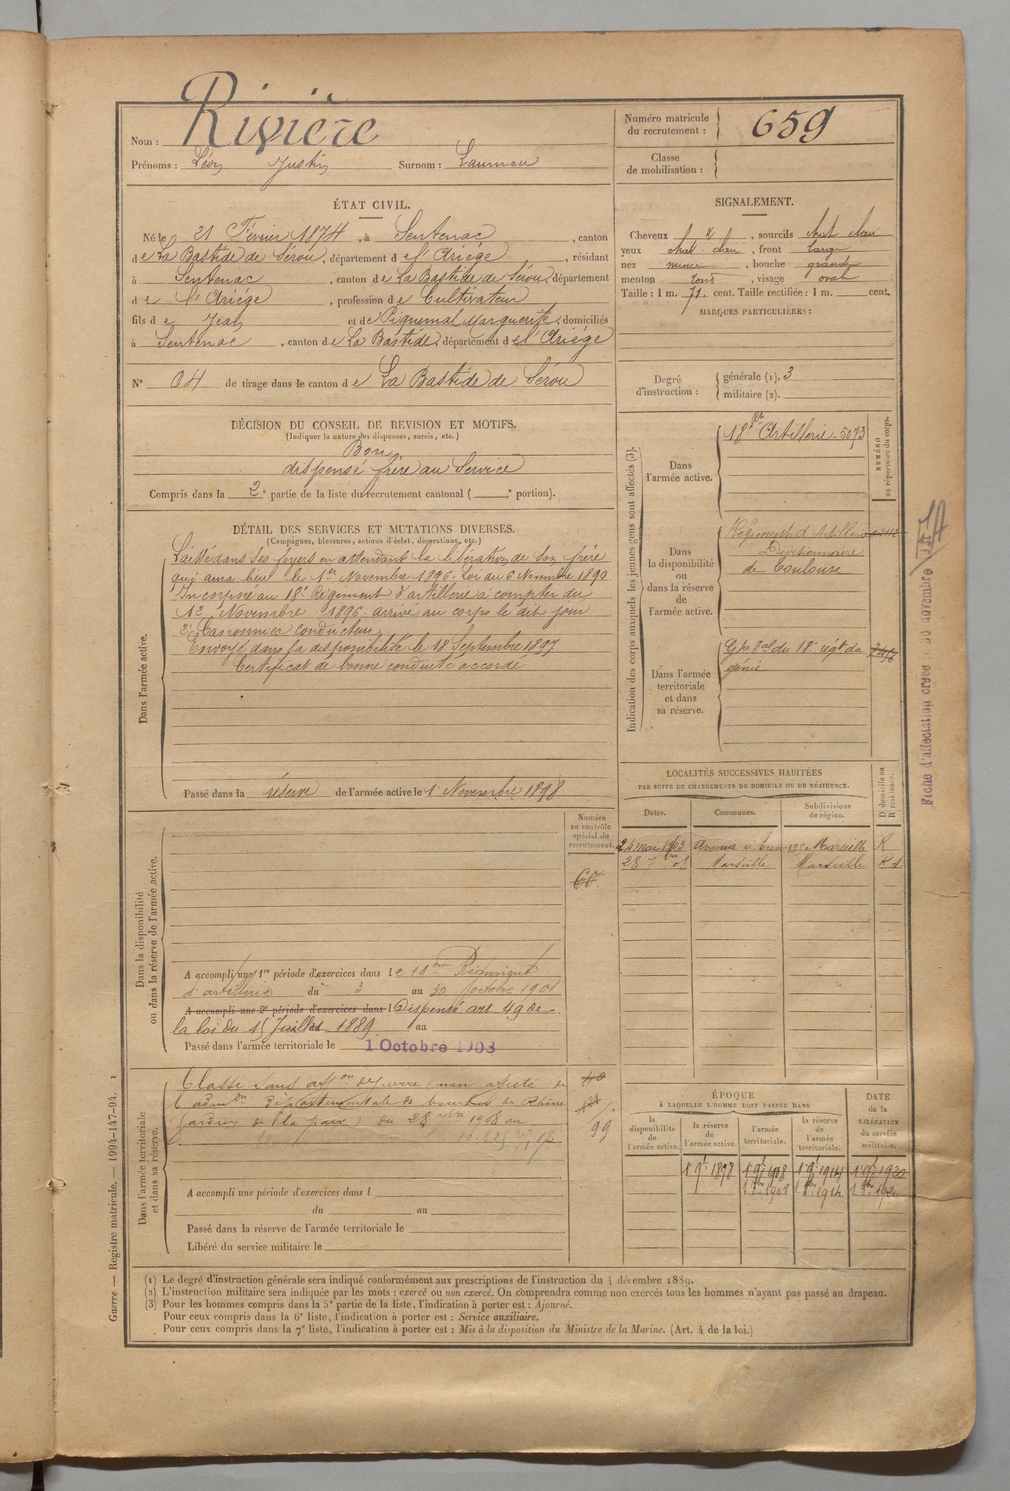 Nom : Rivière
Prénoms : Léon Justin Surnom :
Numéro matricule du recrutement : 659
Classe de mobilisation :
ÉTAT CIVIL.
Né le 21 Février 1874, à Sentenac, canton
de La Bastide de Sérou, département de l'Ariége, résidant
à Sentenac, canton de La Bastide de Sérou, département
de l'Ariége, profession de Cultivateur
fils de Jean et de Piquemal Marguerite, domiciliés
à Sentenac, canton de La Bastide, département de l'Ariége
N° 64 de tirage dans le canton de La Bastide de Sérou
SIGNALEMENT.
Cheveux, sourcils chat clair
yeux chat clair, front large
nez, bouche grande
menton rond, visage oval
Taille : 1 m. 71. cent. Taille rectifiée : 1 m. cent.
MARQUES PARTICULIÈRES :
Degré d'instruction : générale (1). 3
militaire (2).
DÉCISION DU CONSEIL DE REVISION ET MOTIFS.
(Indiquer la nature des dispenses, sursis, etc.)
Bon
dispensé frère au Service
Compris dans la 2e partie de la liste du recrutement cantonal ( e portion).
DÉTAIL DES SERVICES ET MUTATIONS DIVERSES.
(Campagnes, blessures, actions d'éclat, décorations, etc.)
Dans l'armée active.
Laissé dans ses foyers en attendant la libération de son frère
qui aura lieu le 1er Novembre 1896. Loi du 6 Novembre 1890
Incorporé au 18e Régiment d'artillerie à compter du
12 Novembre 1896. arrivé au corps le dit jour
2e Canonnier conducteur
Envoyé dans la disponibilité le 18 Septembre 1897
Certificat de bonne conduite accordé
Passé dans la réserve de l'armée active le 1 Novembre 1898
Indication des corps auxquels les jeunes gens sont affectés (3).
NUMÉRO au répertoire du corps.
Dans l'armée active.
18e Artillerie. 5073
Dans la disponibilité ou dans la réserve de l'armée active.
Régiment d'Artillerie
Divisionnaire
de Toulouse
Dans l'armée territoriale et dans sa réserve.
Gpe du 18e régt du
génie
Fiche d'affectation créée le novembre
LOCALITÉS SUCCESSIVES HABITÉES
PAR SUITE DE CHANGEMENTS DE DOMICILE OU DE RÉSIDENCE.
Dates. Communes. Subdivisions de région. D domicile ou R résidence.
24 mai 1903 Marseille R
Marseille Marseille
Numéro au contrôle spécial du recrutement.
Dans la disponibilité ou dans la réserve de l'armée active.
A accompli une 1re période d'exercices dans le 18eme Régiment
d'artillerie du 3 au 30 octobre 1901
A accompli une 2e période d'exercices dans l Dispensé art 49 de
la loi du 15 Juillet 1889 au
Passé dans l'armée territoriale le 1 Octobre 1903
Dans l'armée territoriale et dans sa réserve.
Classé sans affon
départementale
gardien de la paix 1908 au
99
A accompli une période d'exercices dans l
du au
Passé dans la réserve de l'armée territoriale le
Libéré du service militaire le
ÉPOQUE
À LAQUELLE L'HOMME DOIT PASSER DANS
la disponibilité de l'armée active. la réserve de l'armée active. l'armée territoriale. la réserve de l'armée territoriale. DATE de la LIBÉRATION du service militaire.
(1) Le degré d'instruction générale sera indiqué conformément aux prescriptions de l'instruction du 4 décembre 1889.
(2) L'instruction militaire sera indiquée par les mots : exercé ou non exercé. On comprendra comme non exercés tous les hommes n'ayant pas passé au drapeau.
(3) Pour les hommes compris dans la 5e partie de la liste, l'indication à porter est : Ajourné.
Pour ceux compris dans la 6e liste, l'indication à porter est : Service auxiliaire.
Pour ceux compris dans la 7e liste, l'indication à porter est : Mis à la disposition du Ministre de la Marine. (Art. 4 de la loi.)
Guerre — Registre matricule. — 1994-147-94.